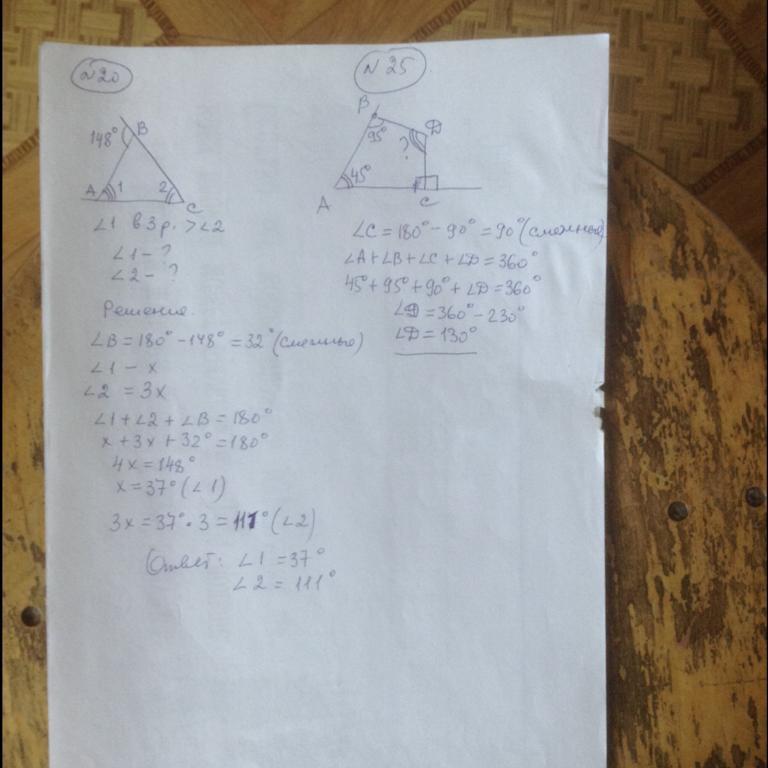 N20
148°
B
A 1 2 C
∠1 в 3 р. > ∠2
∠1 - ?
∠2 - ?
Решение.
∠B = 180° - 148° = 32° (смежные)
∠1 - x
∠2 = 3x
∠1 + ∠2 + ∠B = 180°
x + 3x + 32° = 180°
4x = 148°
x = 37° (∠1)
3x = 37° · 3 = 111° (∠2)
Ответ: ∠1 = 37°
∠2 = 111°
N 25
B
95°
D
?
45°
A
C
∠C = 180° - 90° = 90° (смежные)
∠A + ∠B + ∠C + ∠D = 360°
45° + 95° + 90° + ∠D = 360°
∠D = 360° - 230°
∠D = 130°